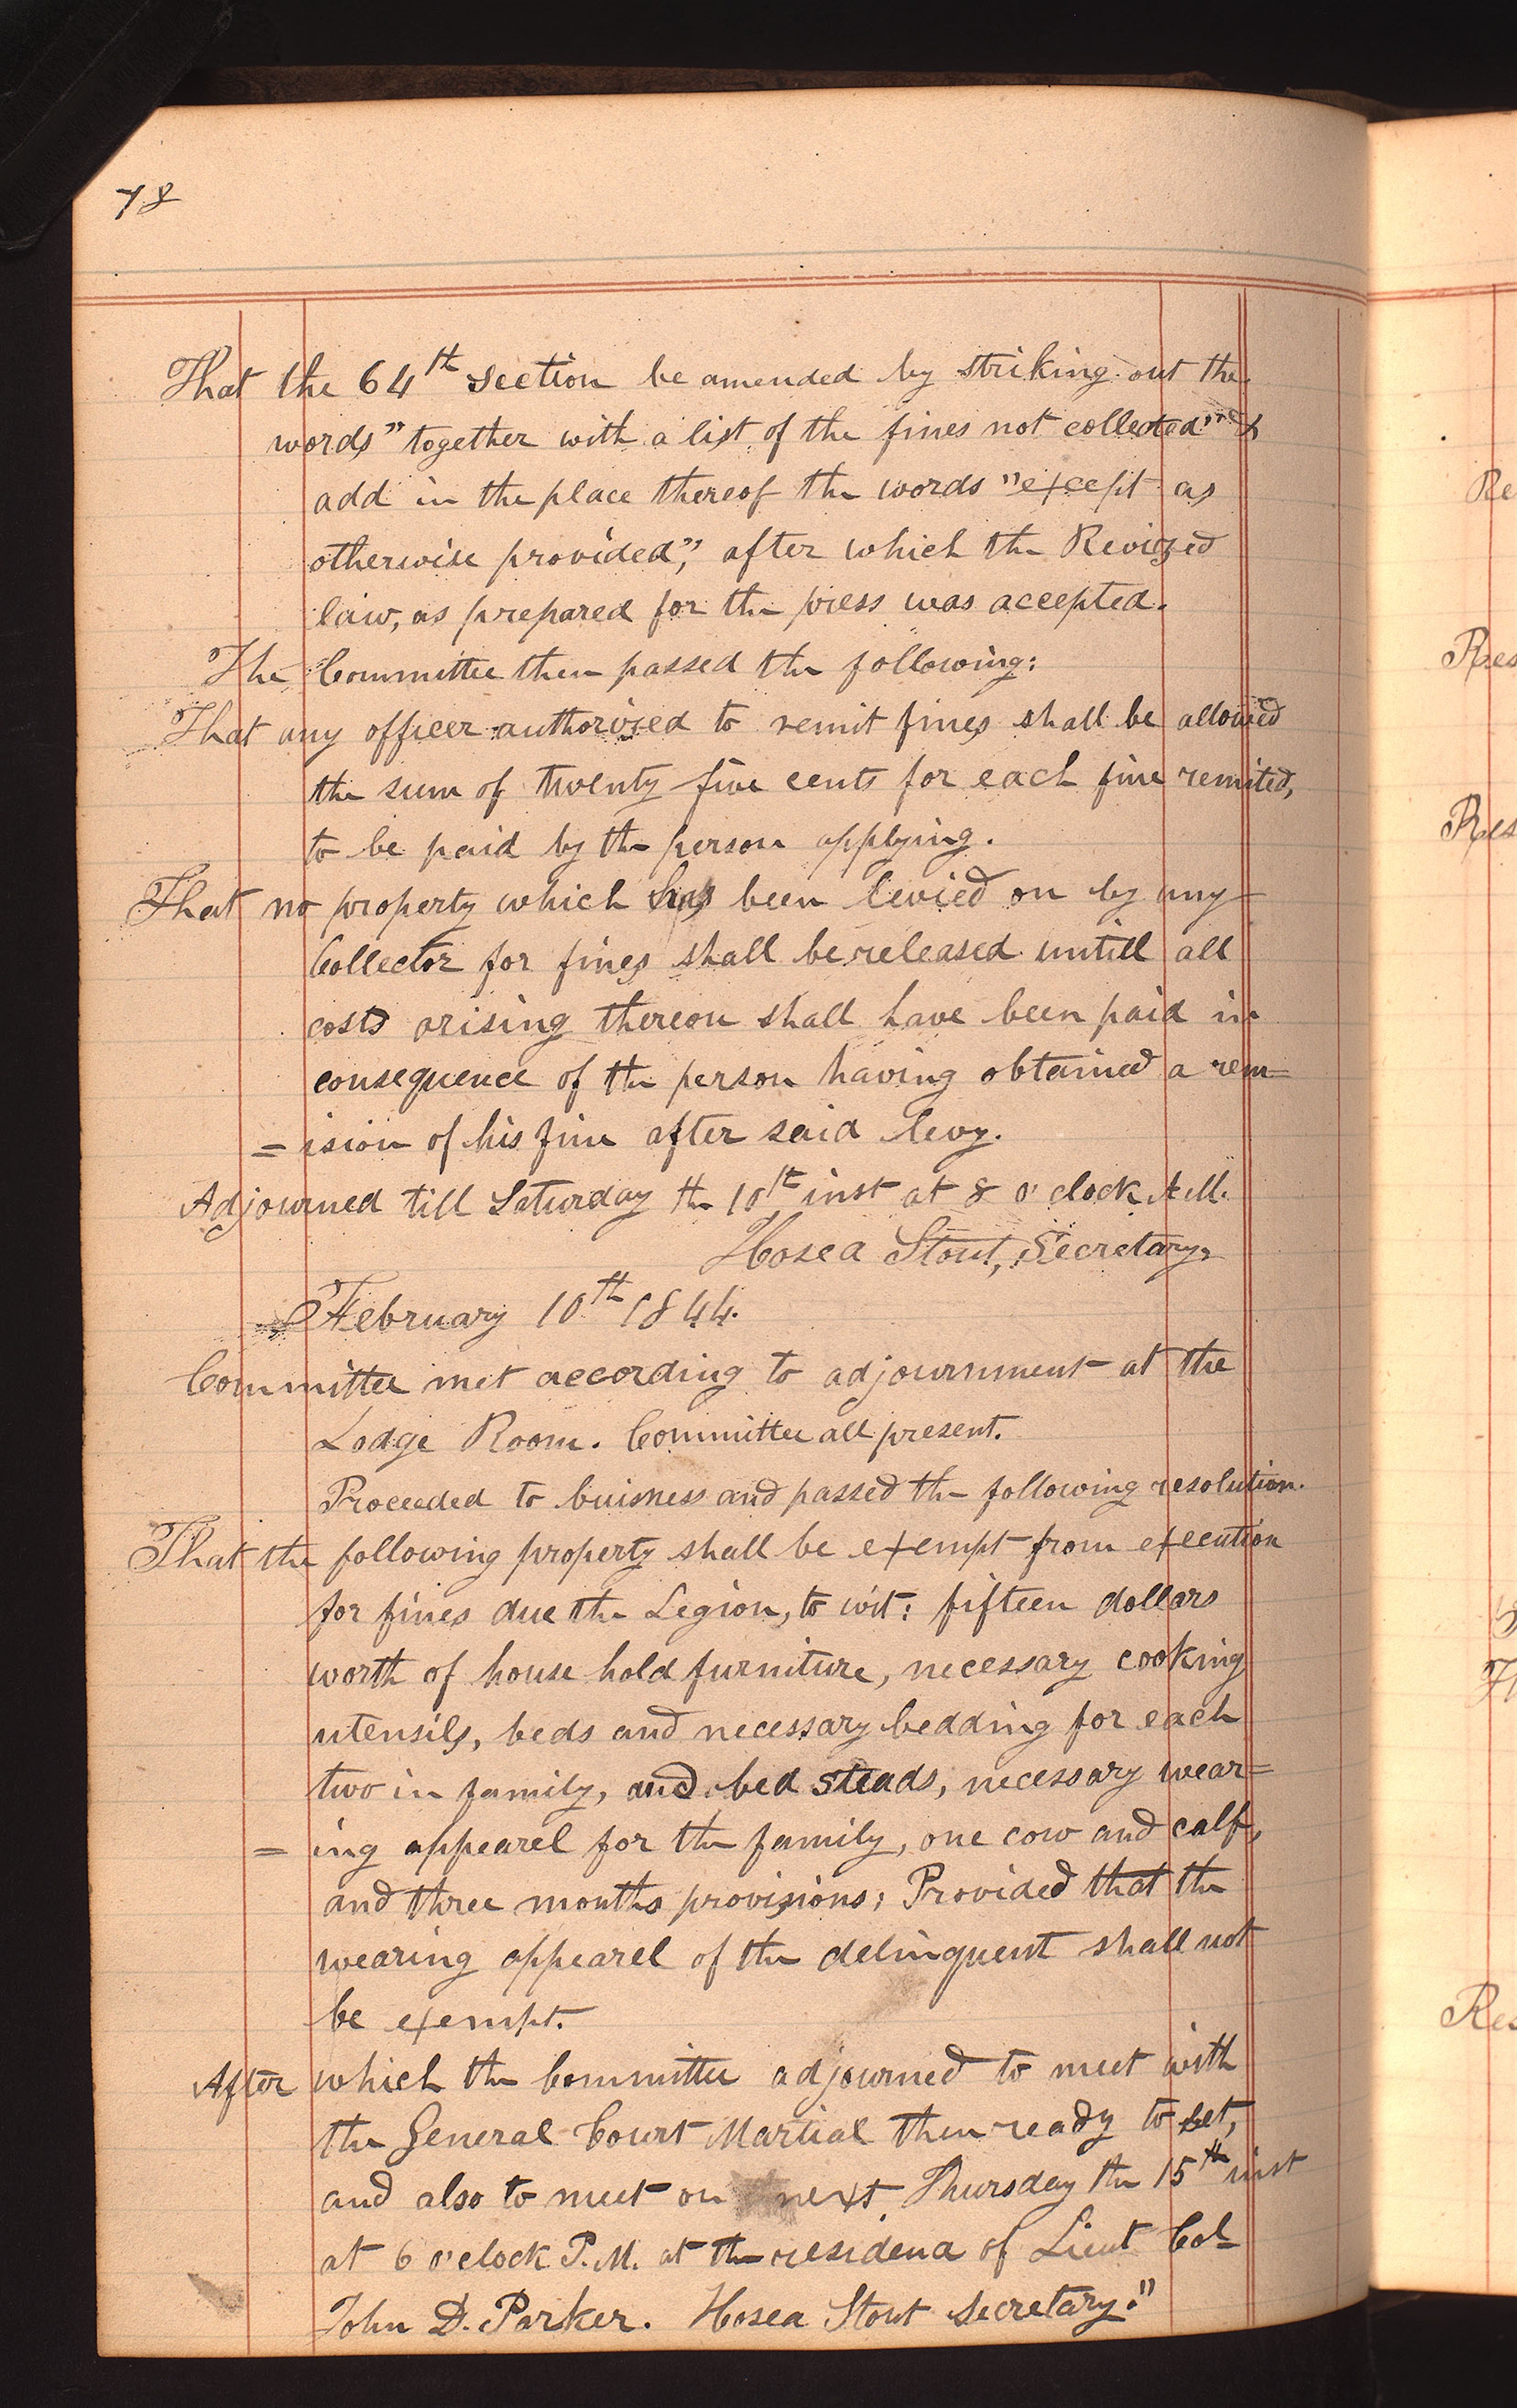 78
That the 64th section be amended by striking out the
words "together with a list of the fines not collected" &
add in the place thereof the words "except as
otherwise provided", after which the Revized
law, as prepared for the press was accepted.
The Committee then passed the following:
That any officer authorized to remit fines shall be allowed
the sum of twenty five cents for each fine remited,
to be paid by the person applying.
That no property which has been levied on by any
Collector for fines shall be released untill all
costs arising thereon shall have been paid in
consequence of the person having obtained a rem=
=ision of his fine after said levy.
Adjourned till Saturday the 10th inst at 8 o'clock A.M.
Hosea Stout, Secretary.
February 10th 1844.
Committee met according to adjournment at the
Lodge Room. Committee all present.
Proceeded to buisness and passed the following resolution.
That the following property shall be exempt from execution
for fines due the Legion, to wit: fifteen dollars
worth of house hold furniture, necessary cooking
utensils, beds and necessary bedding for each
two in family, and bed steads, necessary wear=
=ing appearel for the family, one cow and calf,
and three months provisions; Provided that the
wearing appearel of the delinquent shall not
be exempt.
After which the Committee adjourned to meet with
the General Court Martial then ready to set,
and also to meet on next Thursday the 15th inst
at 6 o'clock P.M. at the residence of Lieut Col
John D. Parker. Hosea Stout Secretary."
Re
Res
Res
Res